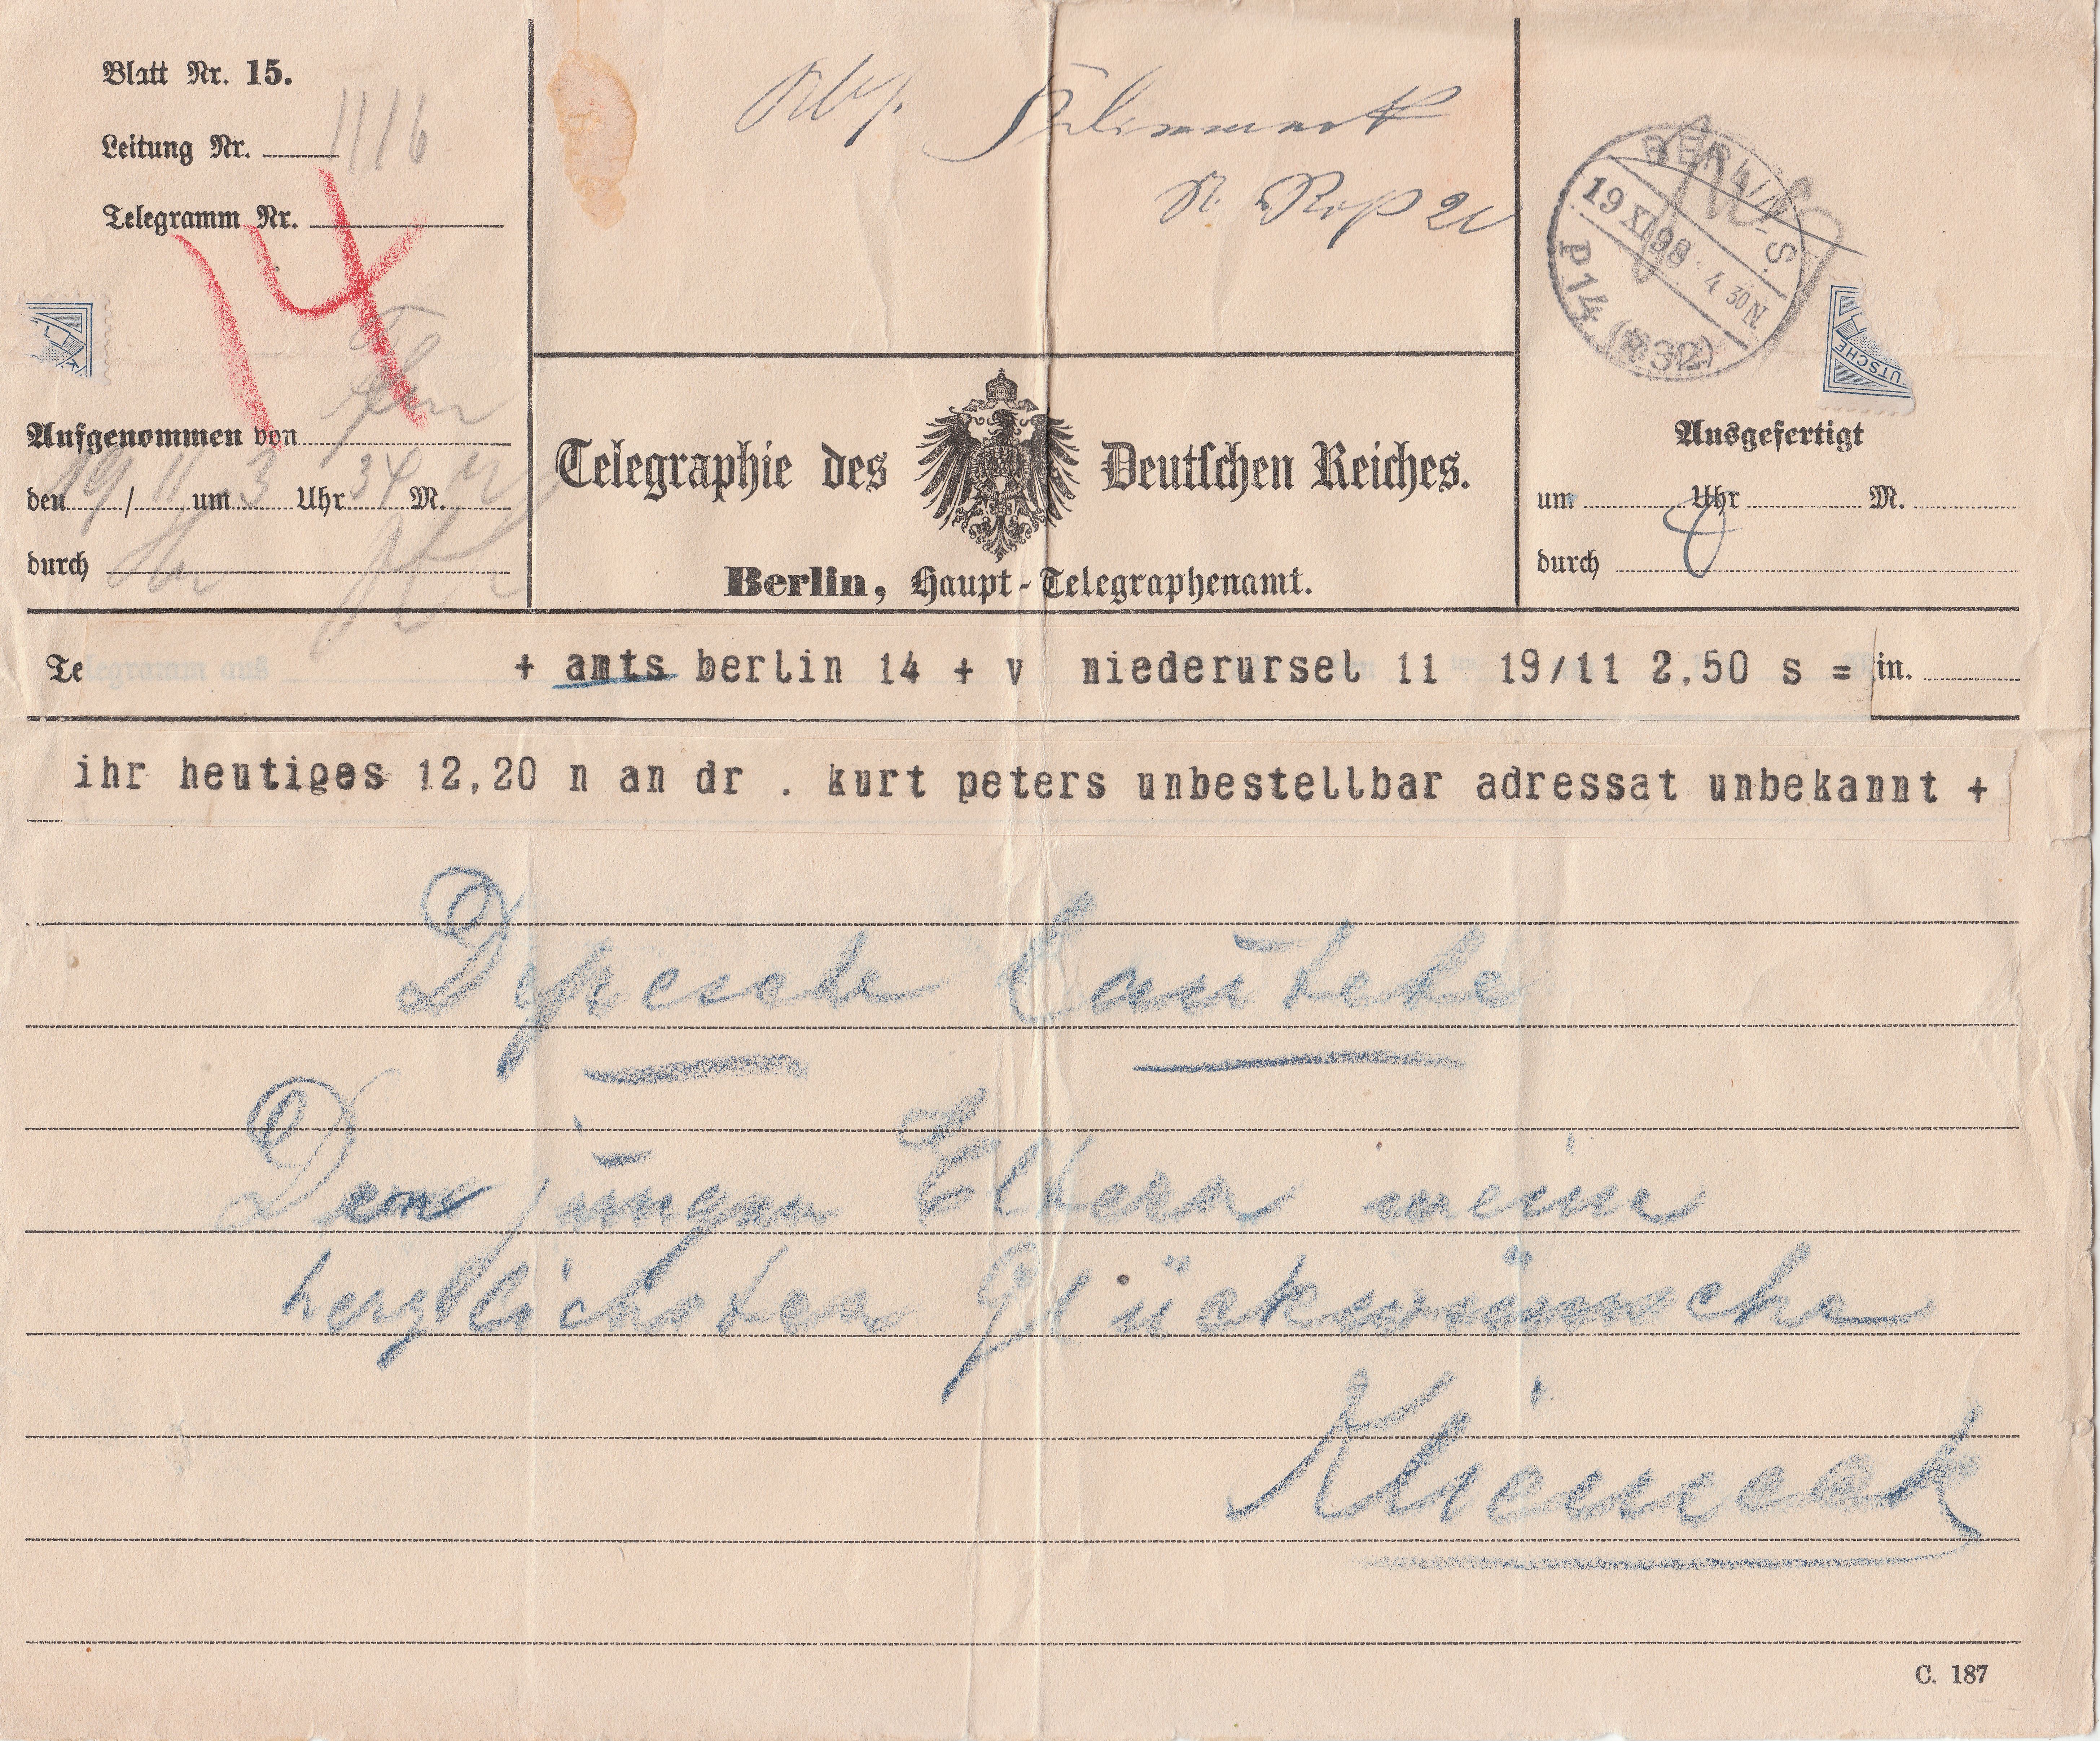 Blatt Nr. 15.
Leitung Nr. 1116
Telegramm Nr.
14
Aufgenommen von
den 19/11 um 3 Uhr 34 M.
durch
Telegraphie des Deutschen Reiches.
Berlin, Haupt-Telegraphenamt.
BERLIN-S.
19 XI 98 4 30 N.
P 14 (R 32)
UTSCHE
Ausgefertigt
um Uhr M.
durch
Telegramm aus + amts berlin 14 + v niederursel 11 19/11 2,50 s = in.
ihr heutiges 12,20 n an dr . kurt peters unbestellbar adressat unbekannt +
Depesche lautete
Den jungen Eltern meine
herzlichsten Glückwünsche
C. 187